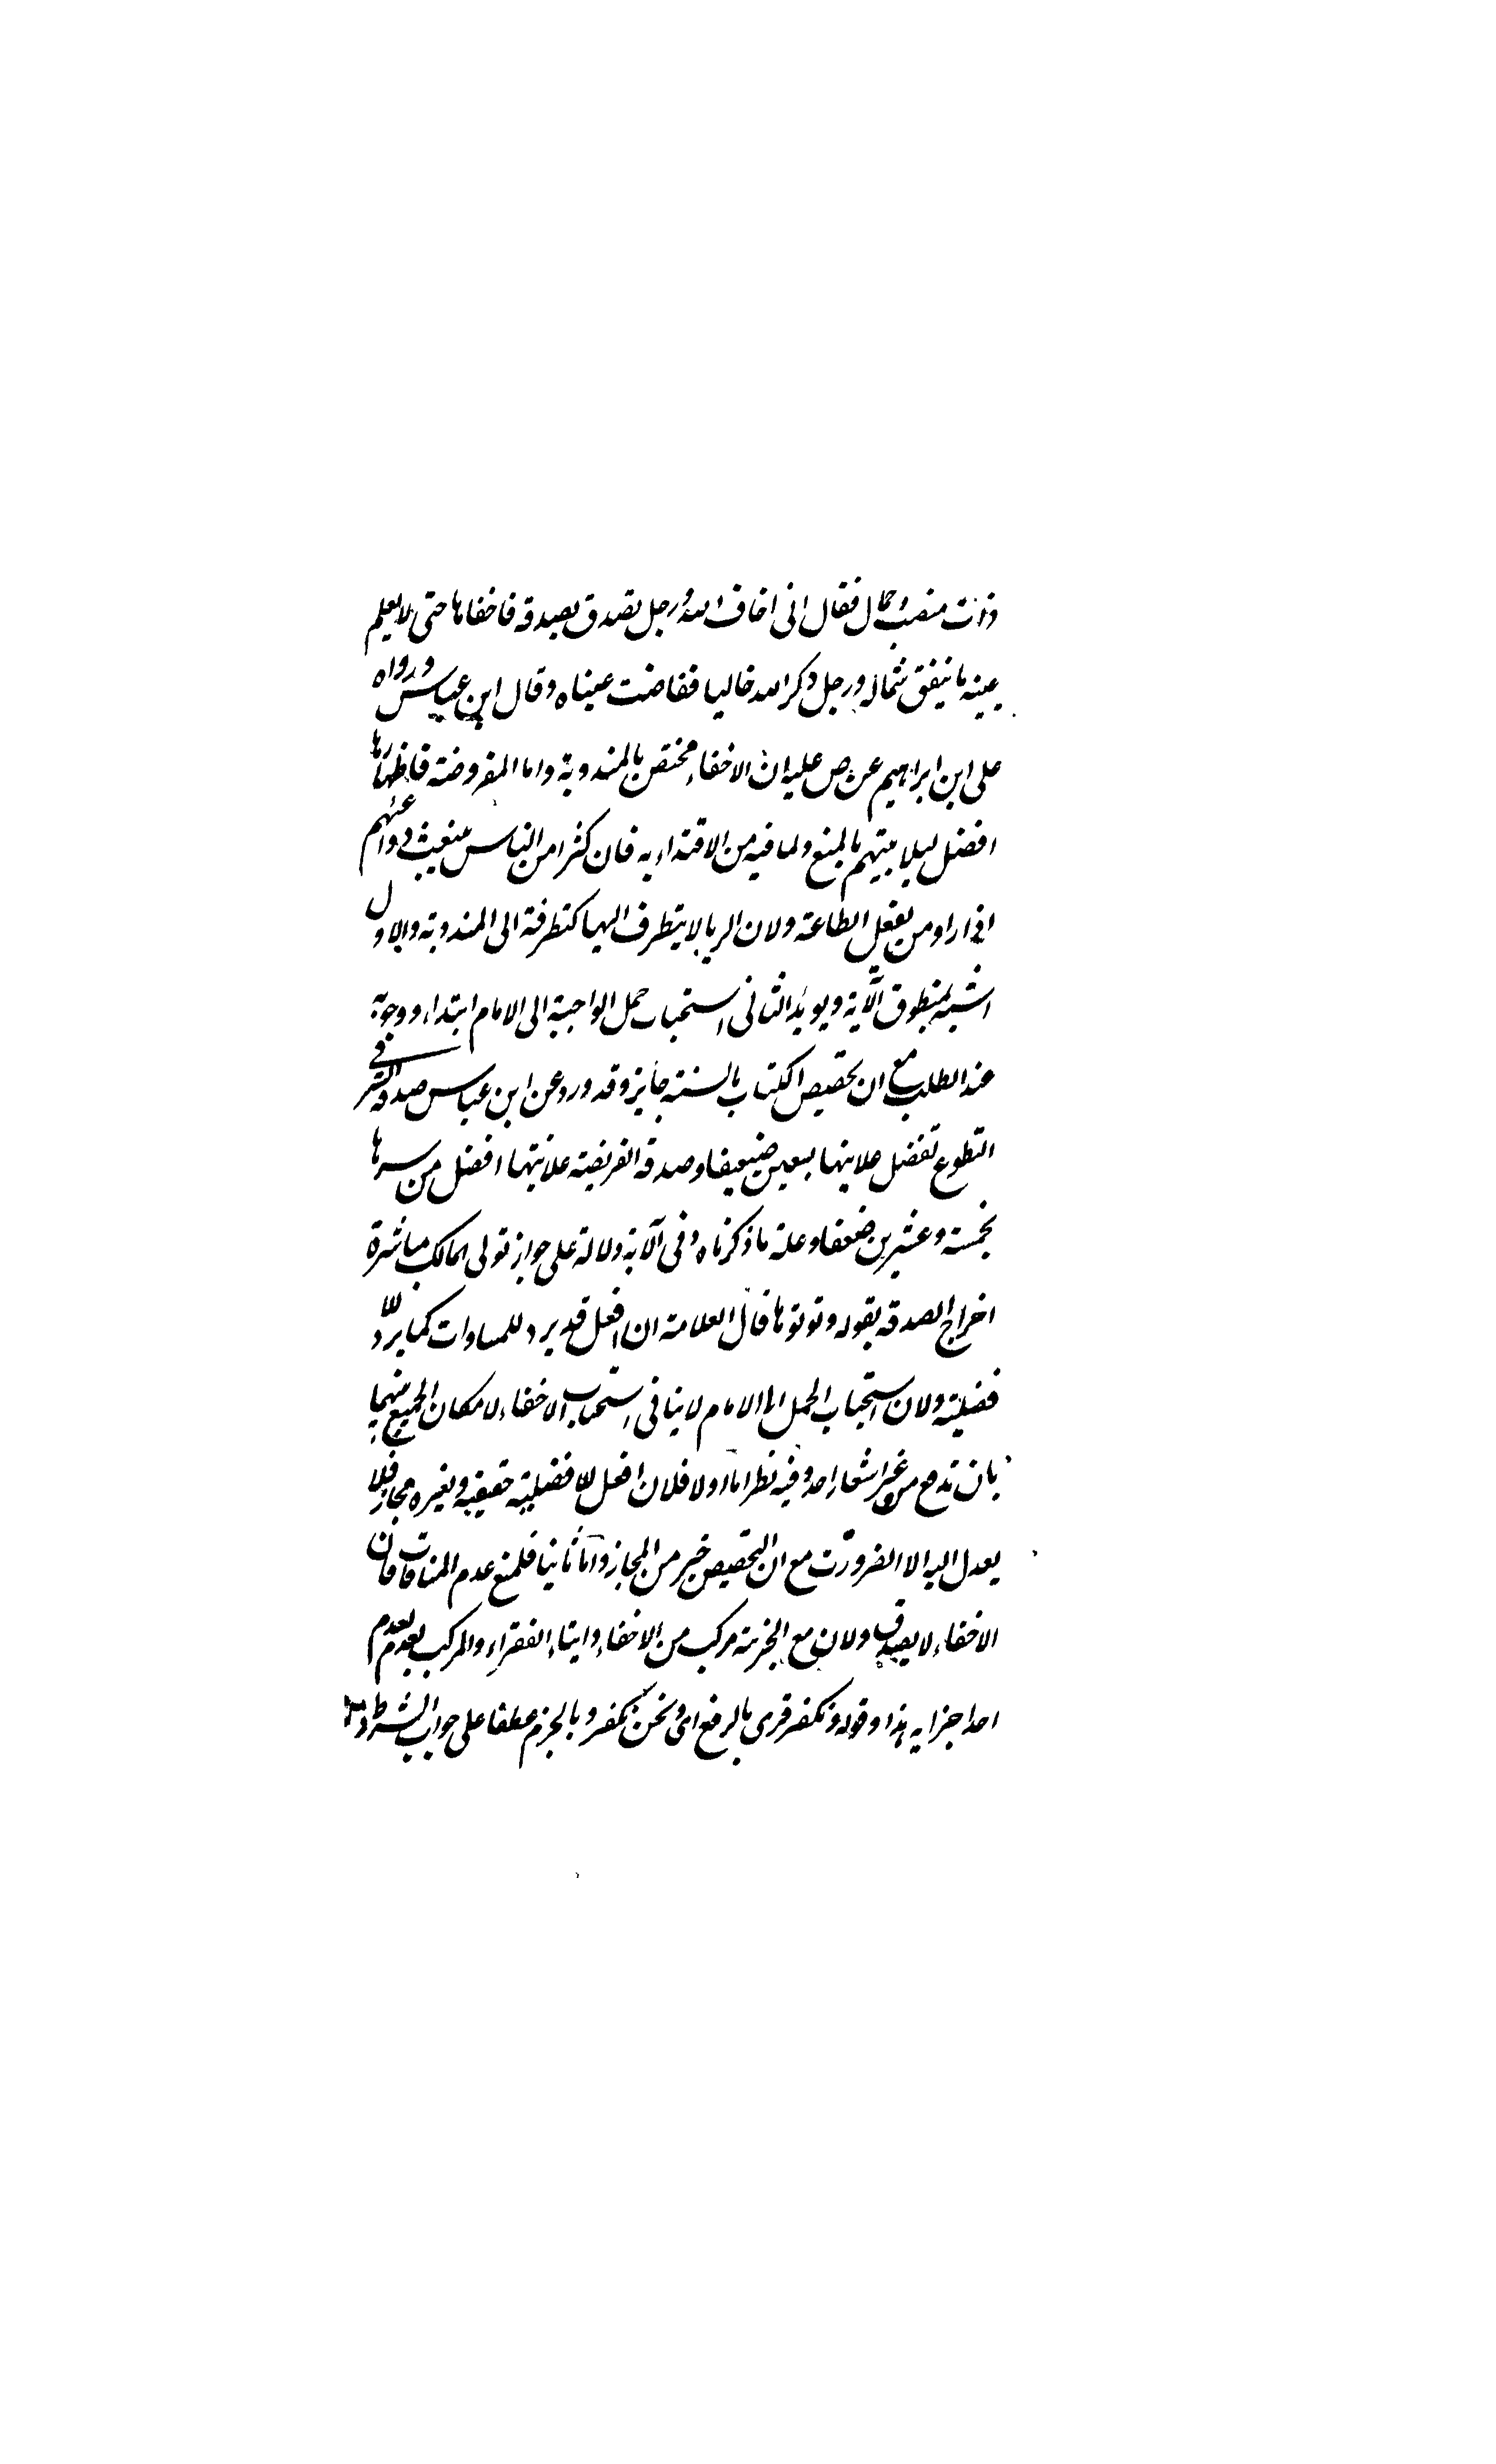 ذات منصب وجمال فقال انى اخاف الله ورجل تصدق بصدقة فاخفاها حتى لا يعلم
يمينه ما ينفق شماله ورجل ذكر الله خاليا ففاضت عيناه وقال ابن عباس ورواه
على ابن ابراهيم عن ص عليه ان الاخفاء مختص بالمندوبة واما المفروضة فاظهارها
افضل ليلا يتهم بالمنع ولما فيه من الاقتداء به فان كثرا من الناس ينبعث دواعيهم
اذا راو من يفعل الطاعة ولان الريا لا يتطرف اليها كتطرفة الى المندوبة والاول
اشبه بمنطوق الآية ويويد الثانى استحباب حمل الواجبة الى الامام ابتداء ووجوبه
عند الطلب مع ان تخصيص الكتاب بالسنة جايز وقد ورد عن ابن عباس صدقة السر فى
التطوع تفضل علانيتها بسبعين ضعيفا وصدقة الفريضة علانيتها افضل من سرها
بخمسة وعشرين ضعفا وعلة ما ذكرناه وفى الآية دلالة على جواز تولى المالك مباشرة
اخراج الصدقة بقوله وتوتوها قال العلامة ان افعل قد يرد للمساوات كما يرد للا
فضلية ولان استحباب الحمل الى الامام لا ينافى استحباب الاخفاء لامكان الجمع بينهما
بان تدفع من غير اشعار احد وفيه نظر اما اولا فلان افعل للا فضلية حقيقة ولغيره مجاز فلا
يعدل اليه الا لضرورت مع ان التخصيص خير من المجاز واما ثانيا فلمنع عدم المنافات فان
الاخفاء لا يصدق ولان مع الخرية مركب من الاخفاء وايتاء الفقراء والمركب يعدم بعدم
احد اجزايه هذا وقوله ونكفر قرى بالرفع اى ونحن نكفر وبالجزم عطفا على جواب الشرط